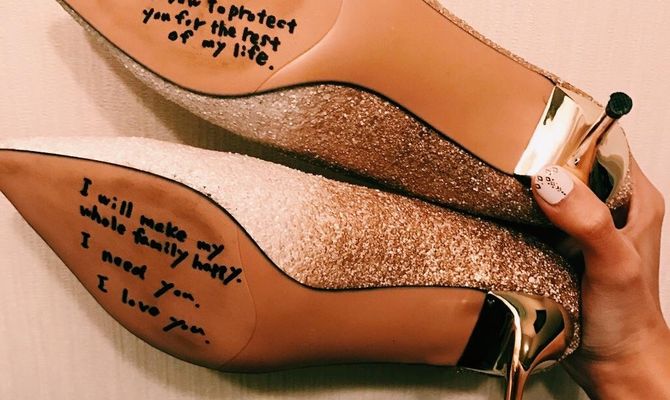 to protect
you for the rest
of my life.
I will make my
whole family happy.
I need you.
I love you.